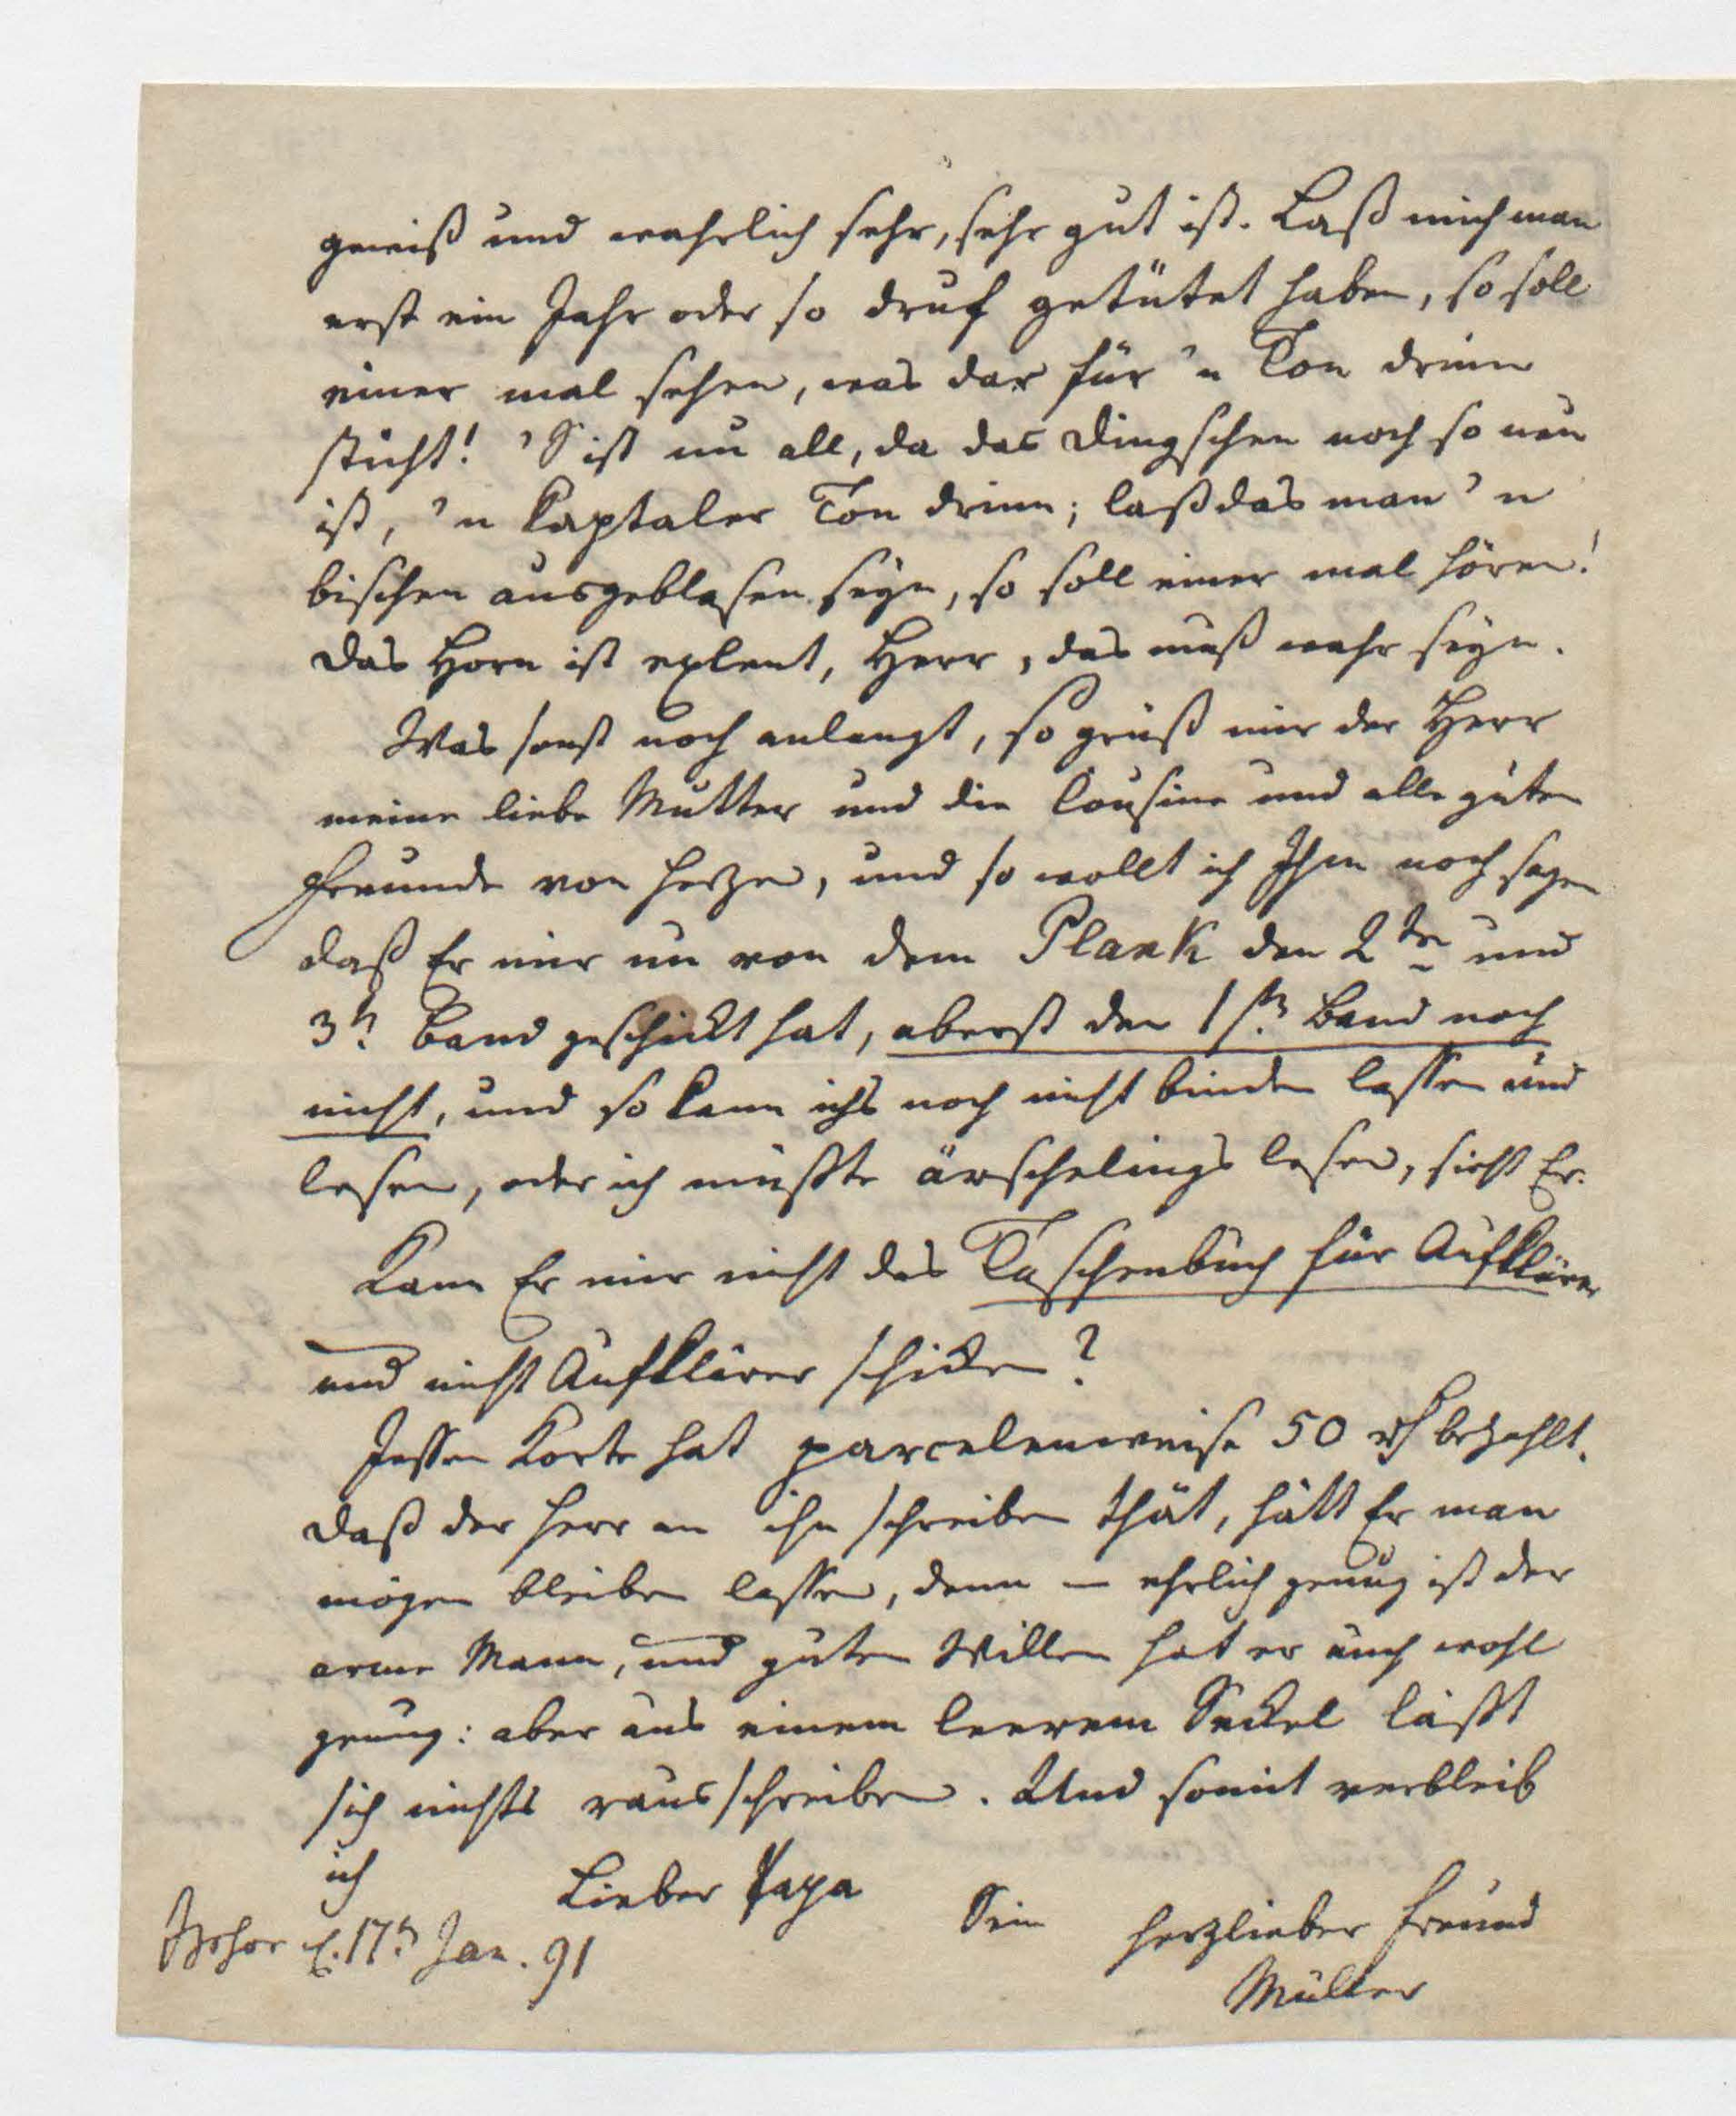 gewiß und wahrlich sehr, sehr gut ist. Laß mich man
erst ein Jahr oder so druf getütet haben, so soll
einer mal sehen, was dar für 'n Ton drinn
sticht! 'S ist nu all, da das Dingschen noch so neu
ist, 'n kaptaler Ton drinn; laß das man 'n
bischen ausgeblasen seyn, so soll einer mal hören!
Das Horn ist exlent, Herr, das muß wahr seyn.
Was sonst noch anlangt, so grüß mir der Herr
meine liebe Mutter und die Cousine und alle guten
Freunde von Herzen, und so wollt ich Ihm noch sagen
daß Er mir nu von dem Plank den 2ten und
3t. Band geschickt hat, aberst den 1st. Band noch
nicht, und so kann ichs noch nicht binden lassen und
lesen, oder ich müßte ärschelings lesen, sieht Er.
Kann Er mir nicht das Taschenbuch für Aufklärer
und nicht Aufklärer schicken?
Jessen Korte hat parcelenweise 50 rh bezahlt.
Daß der Herr an ihn schreiben thät, hätt Er man
mögen bleiben lassen, denn – ehrlich genug ist der
arme Mann, und guten Willen hat er auch wohl
genug: aber aus einem leerem Seckel läßt
sich nichts rausschreiben. Und somit verbleib
ich
Lieber Papa
Sein herzlieber Freund
Müller
Itzehoe d. 17t. Jan. 91